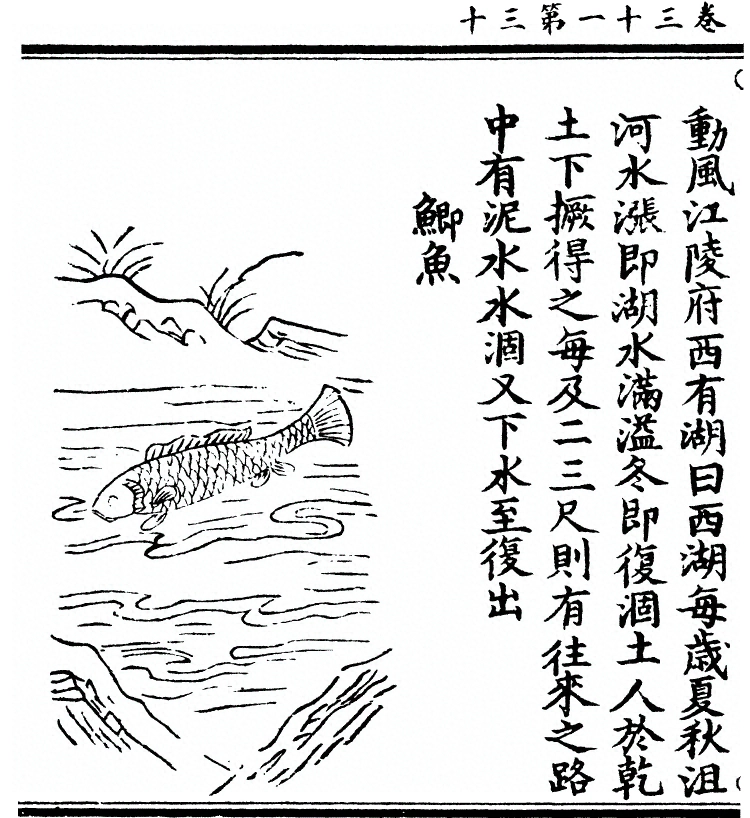 卷三十一第三十
動風江陵府西有湖曰西湖每歲夏秋沮
河水漲即湖水滿溢冬即復涸土人於乾
土下撅得之每及二三尺則有往來之路
中有泥水水涸又下水至復出
鯽魚